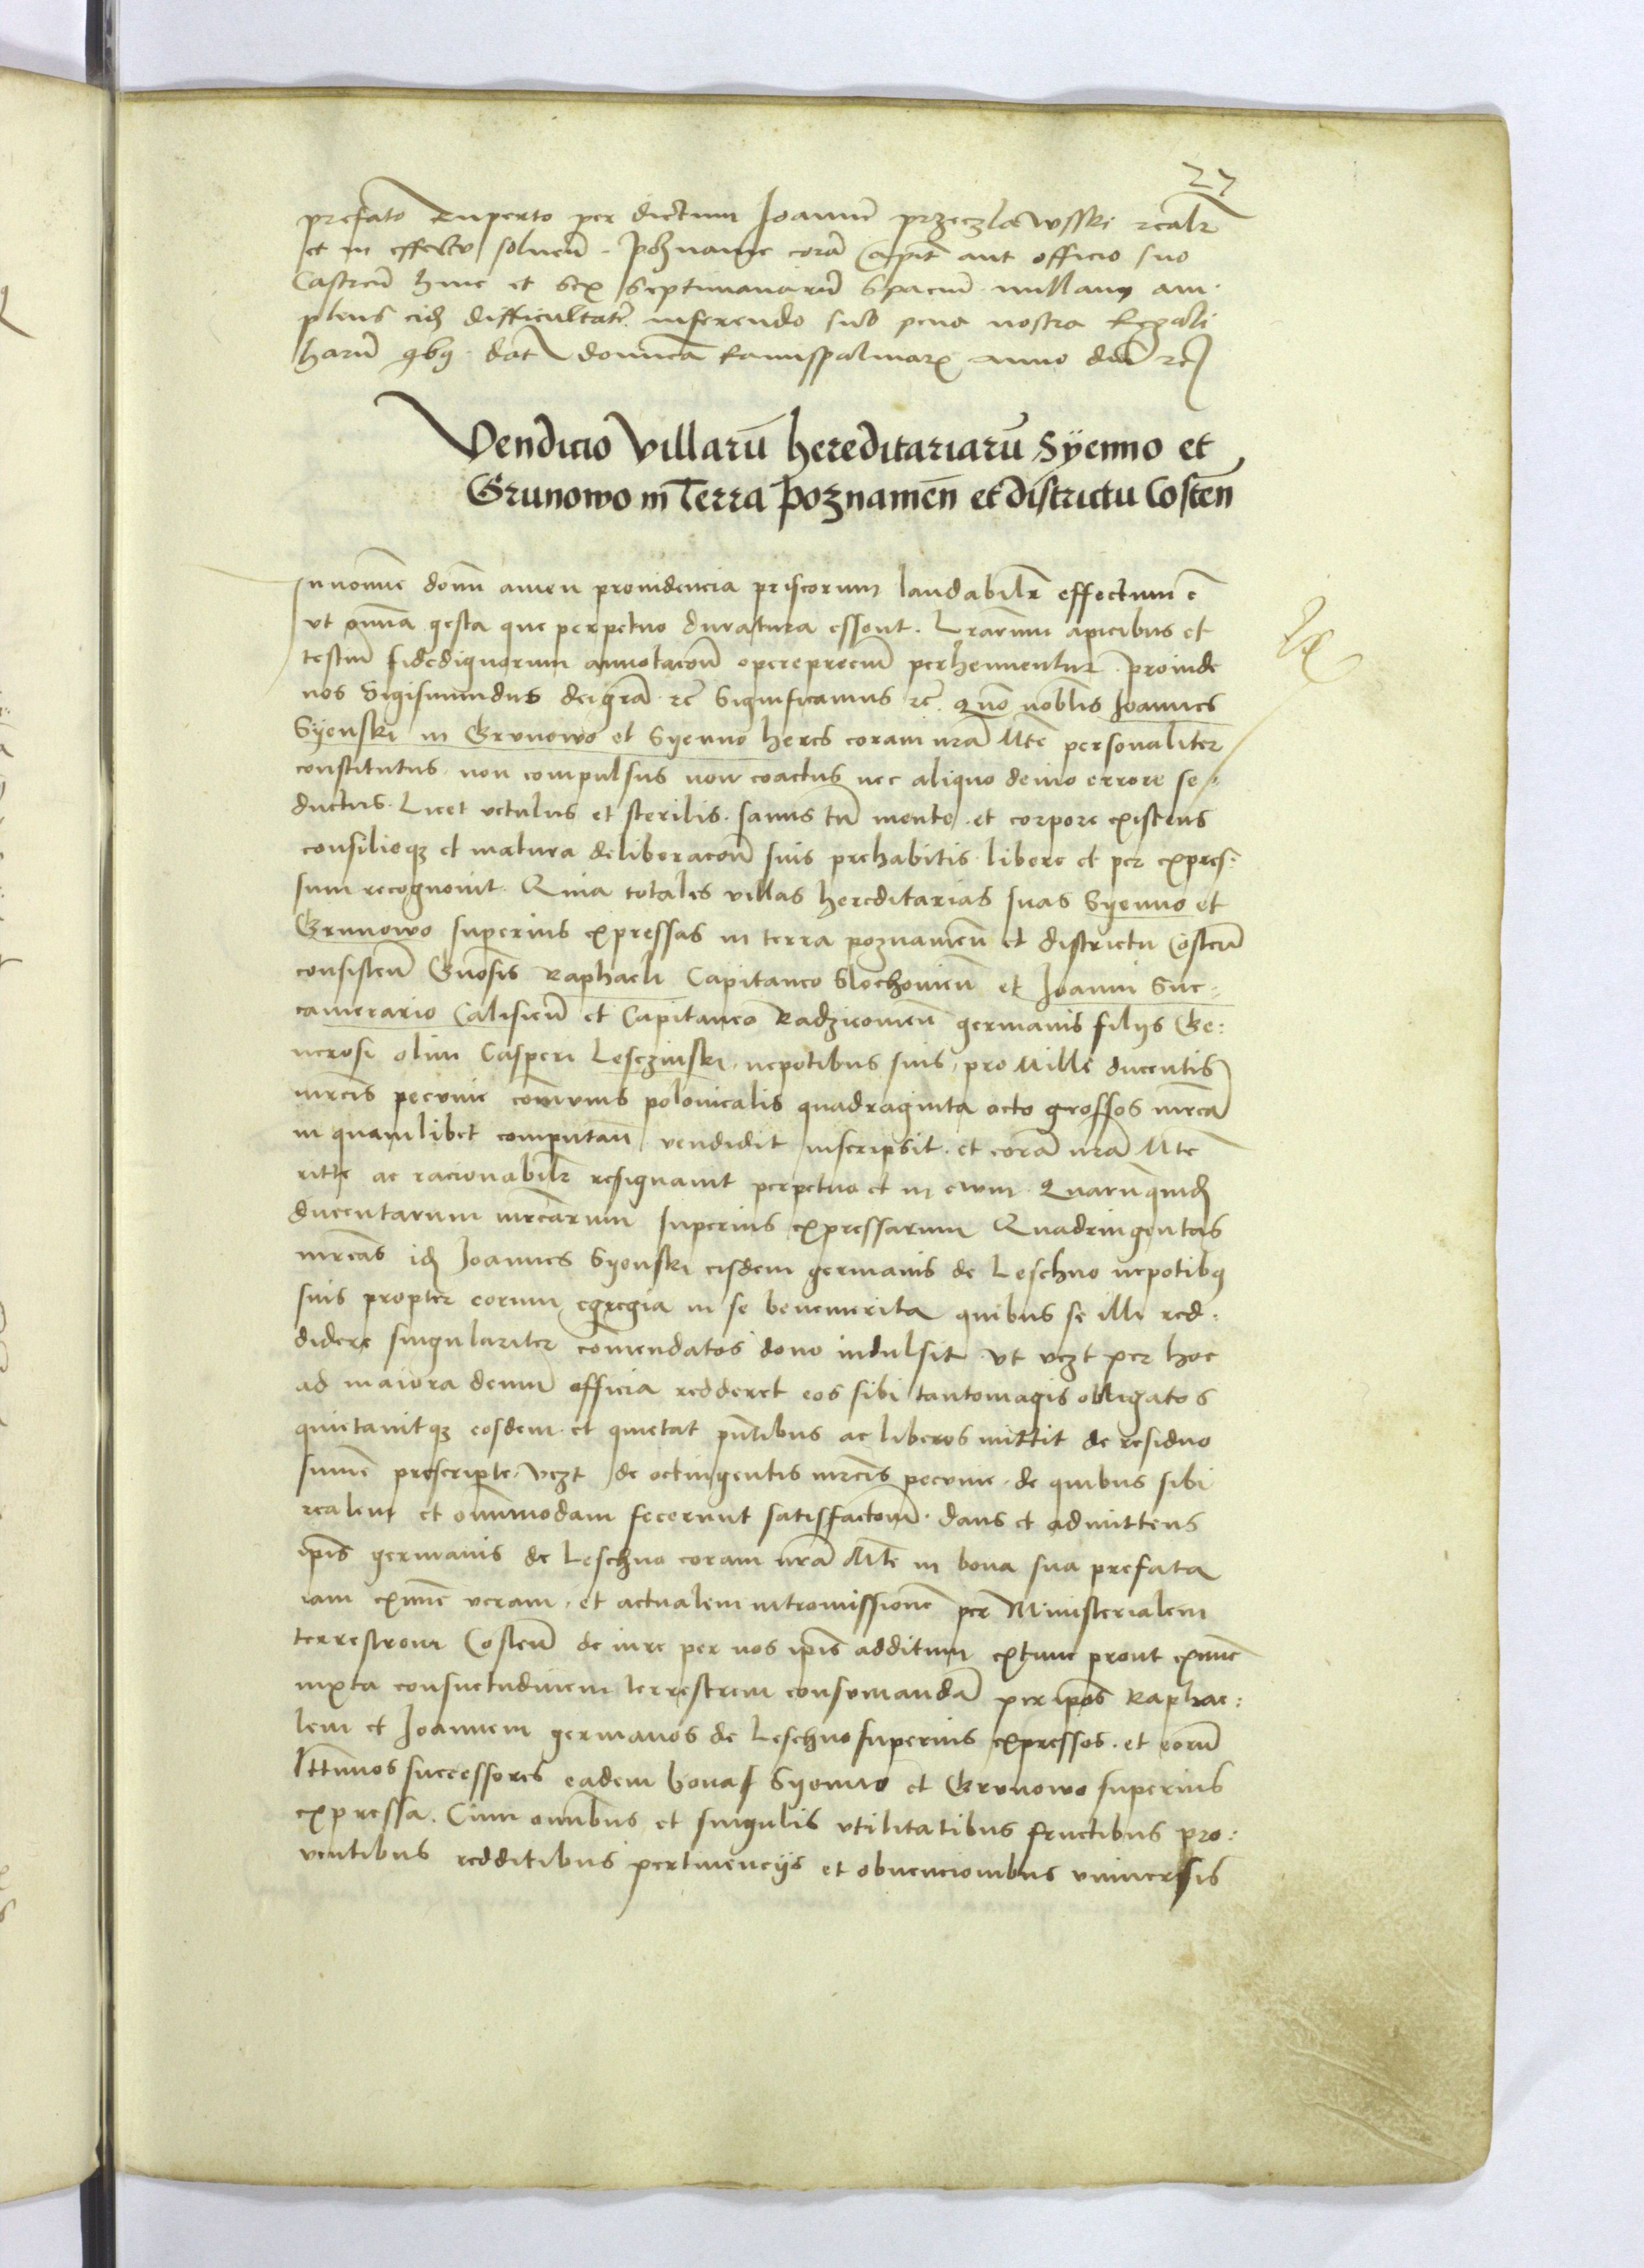 27
prefato Ruperto per dictum Joannē przeczlawsski realr
et in effectu soluen̄. Poznanie corā Capit aut officio suo
Castren̄ hinc et sex septimanarū spaciū nullam am:
plius eidē difficultatē inferendo sub pena nostra Regali
harū qbꝫ. dat dominica Ramispalmarꝝ anno dni rc̄
Vendicio Villarū hereditariarū Syenno et
Grunowo in Terra Poznanien̄ et districtu Costen̄
In nomine domī amen prouidencia priscorum laudabilr effectum ē
vt omnia gesta que perpetuo duratura essent. Lrarum apicibus et
testiū fidedignorum annotacōne operepreciū perhennentur. proinde
nos Sigismundus dei grā rc̄ Significamus rc̄. Quō nobilis Joannes
Syenski in Grunowo et Syenno heres coram nrā Mte personaliter
constitutus non compulsus non coactus nec aliquo deuio errore se:
ductus. Licet vetulus et sterilis. sanus tn̄ mente. et corpore existens
consilioqꝫ et matura deliberacōne suis prehabitis libere et per expres:
sum recognouit. Quia totales villas hereditarias suas Syenno et
Grunowo superius expressas in terra poznanien̄ et districtu Costen̄
consisten̄ Gn̄osis Raphaeli Capitaneo Slochouien̄ et Joanni Suc:
camerario Calisien̄ et Capitaneo Radzieiouien̄ germanis filijs Ge:
nerosi olim Casperi Lesczinski. nepotibus suis, pro Mille ducentis
mrcis pecunie com̄unis polonicalis quadraginta octo grossos mrcā
in quamlibet computan̄ vendidit inscripsit. et corā nrā Mte
ritte ac racionabilr resignauit perpetuo et in ewm. Quarū quidē
ducentarum mrcarum superius expressarum Quadringentas
mrcas idē Joannes Syenski eisdem germanis de Leschno nepotibꝫ
suis propter eorum egregia in se benemerita quibus se illi red:
didere singulariter com̄endatos dono indulsit. vt vczt per hoc
ad maiora demū officia redderet eos sibi tantomagis obligatos
quietauitqꝫ eosdem. et quietat pn̄tibus ac liberos mittit de residuo
sum̄e prescripte. vczt de octingentis mrcis pecunie. de quibus sibi
realem et omnimodam fecerunt satisfactōnē. dans et admittens
ip̄is germanis de Leschno coram nrā Mte in bona sua prefata
iam exnunc veram. et actualem intromissionē per Ministerialem
terrestrem Costen̄ de iure per nos ip̄is additum extunc prout exnunc
iuxta consuetudinem terrestrem consumandā per ip̄os Raphae:
lem et Joannem germanos de Leschno superius expressos. et eorū
lttimos successores eadem bona Syenno et Grunowo superius
expressa. Cum omnibus et singulis vtilitatibus fructibus pro:
uentibus redditibus pertinencijs et obuencionibus vniuersis